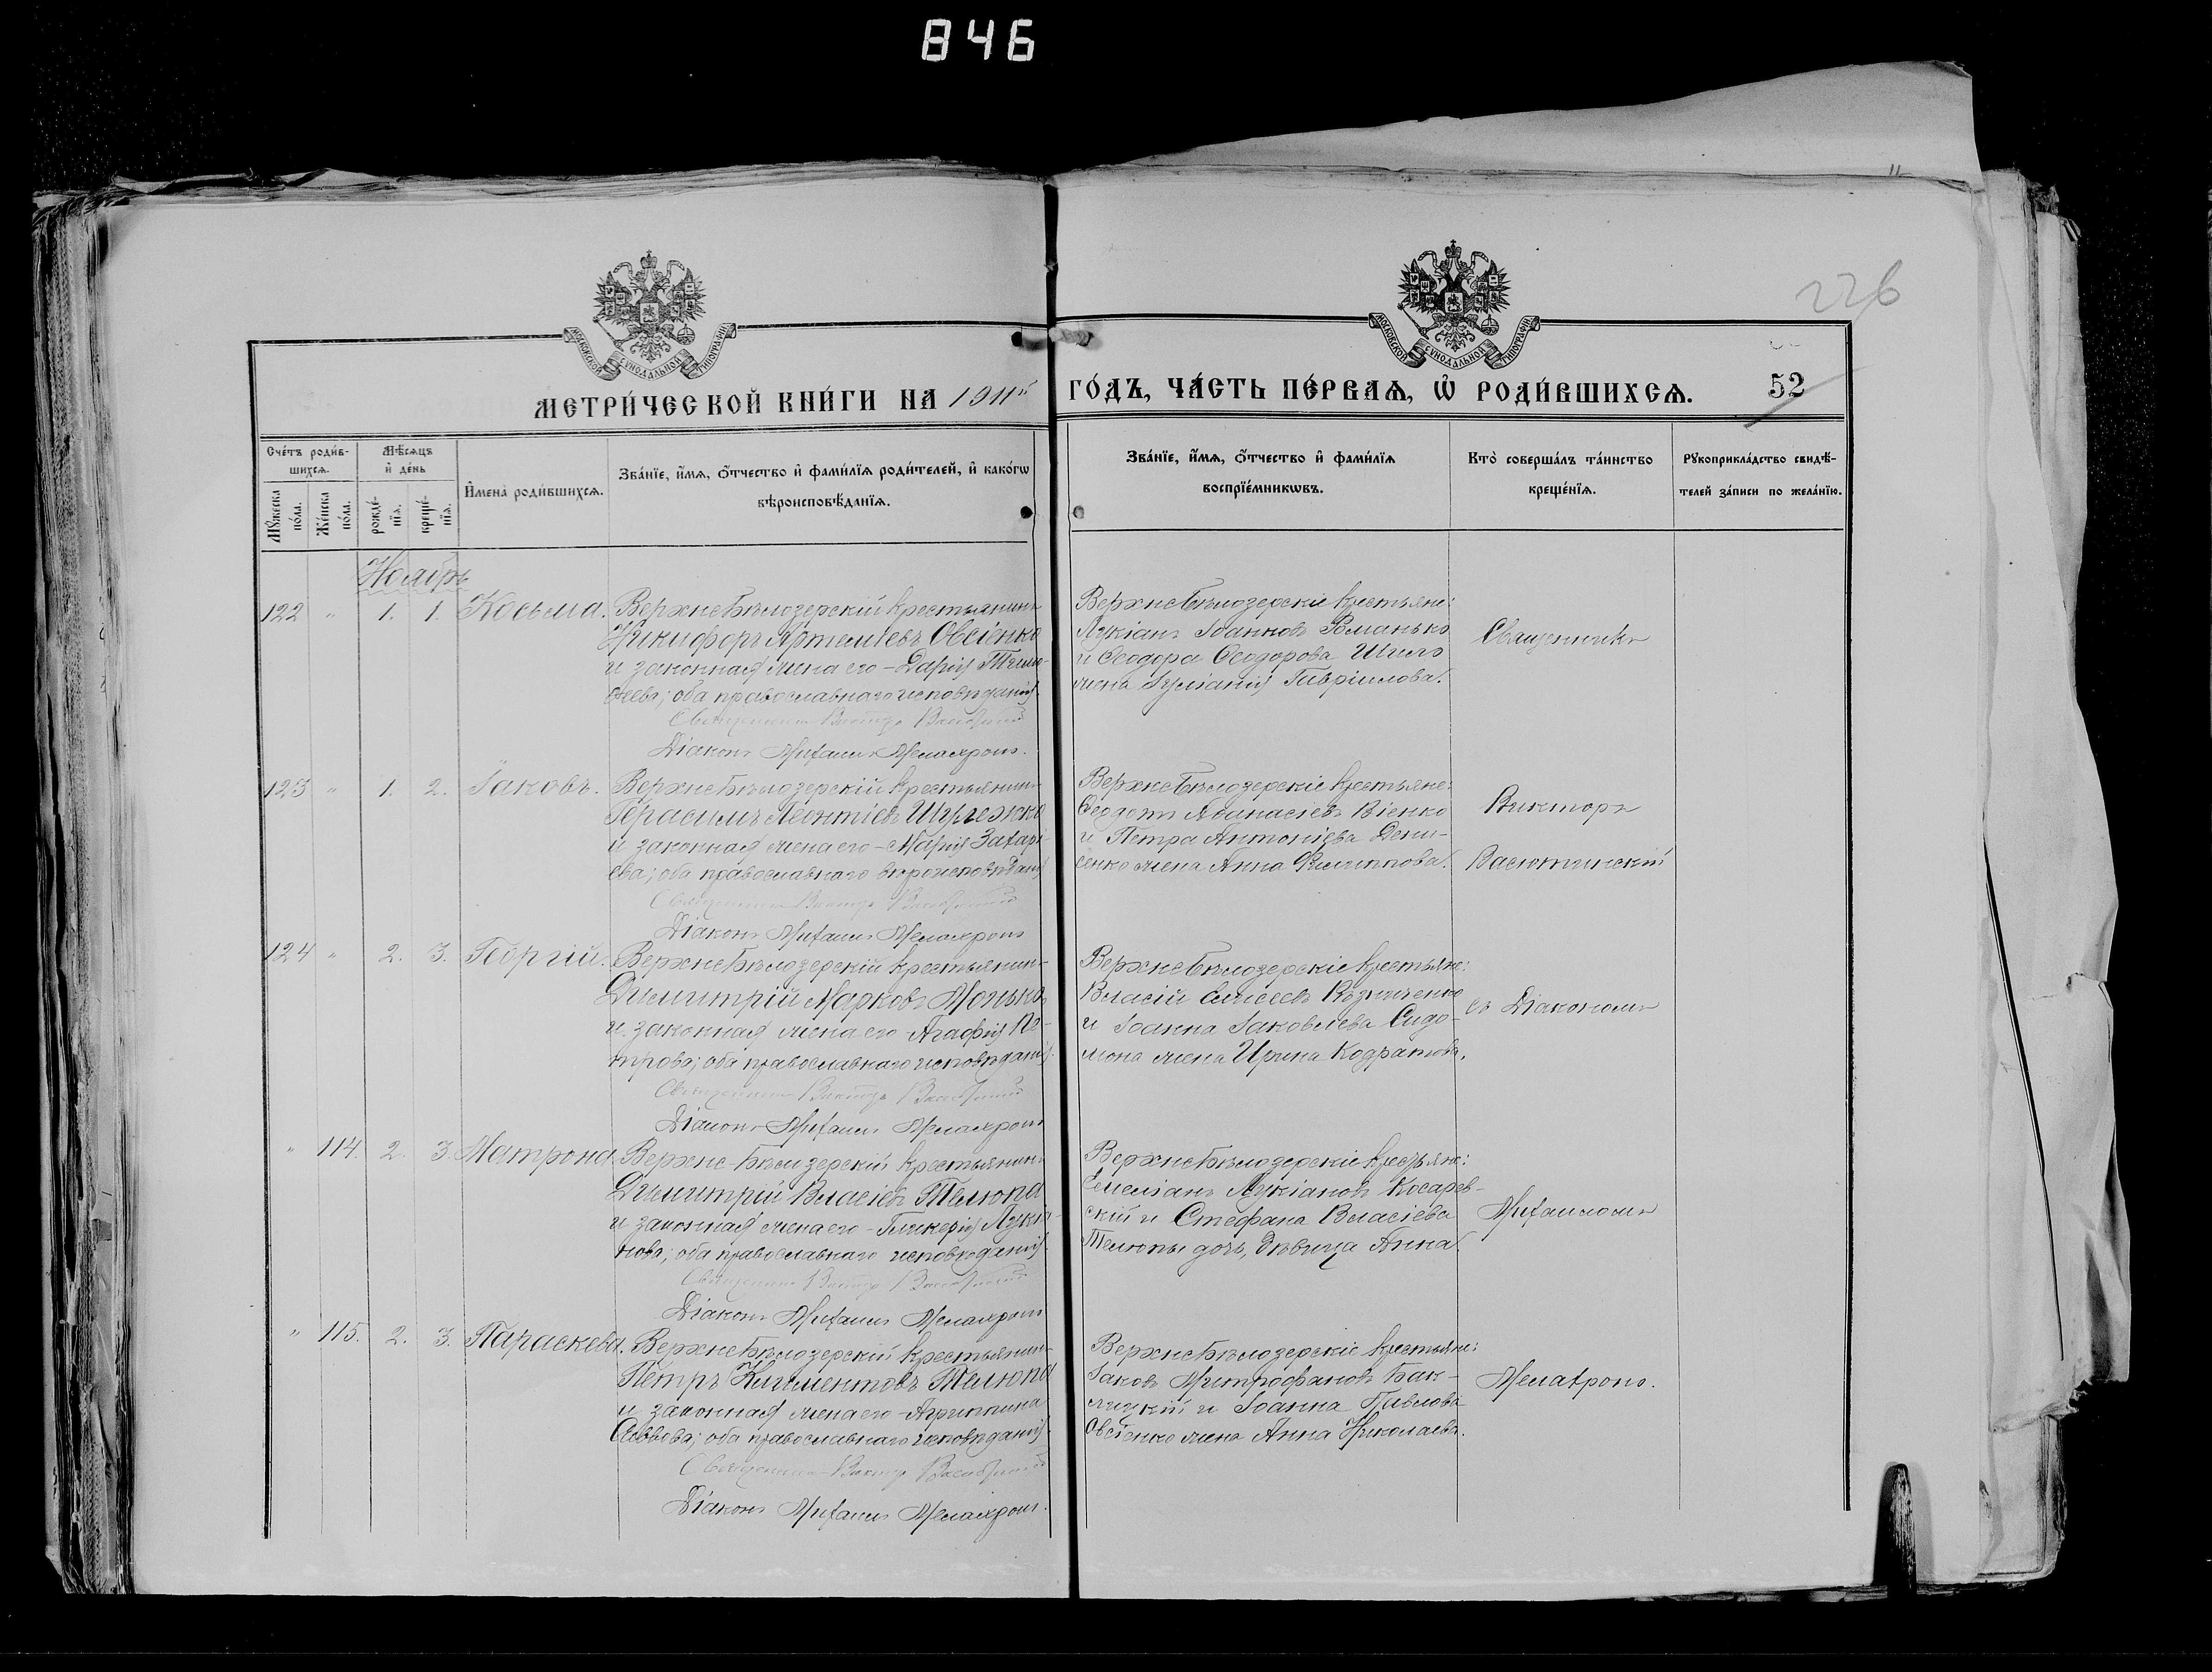 846
226
МОСКОВСКОЙ СѴНОДАЛЬНОЙ ТИПОГРАФІИ
МОСКОВСКОЙ СѴНОДАЛЬНОЙ ТИПОГРАФІИ
МЕТРИ́ЧЕСКОЙ КНИ́ГИ НА 1911й ГО́ДЪ, ЧА́СТЬ ПЕ́РВАѦ, Ѽ РОДИ́ВШИХСѦ. 52
Сче́тъ роди́в-
шихсѧ.
Мꙋ́жеска по́ла.
Же́нска по́ла.
Мѣ́сѧцъ
и҆ де́нь
рожде́-
нїѧ.
креще́-
нїѧ.
И҆мена̀ роди́вшихсѧ.
Зва́нїе, и҆́мѧ, ѻ҆́тчество и҆ фами́лїѧ роди́телей, и҆ како́гѡ
вѣроисповѣ́данїѧ.
Зва́нїе, и҆́мѧ, ѻ҆́тчество и҆ фами́лїѧ
воспрїе́мникѡвъ.
Кто̀ соверша́лъ та́инство
креще́нїѧ.
Рꙋкоприкла́дство свидѣ́-
телей за́писи по жела́нїю.
Ноябрь
122 " 1. 1. Косьма. Верхнебѣлозерскій крестьянинъ
Никифоръ Артеміевъ Овсіенко
и законная жена его - Дарія Тимо-
ѳеева; оба православнаго исповѣданія
Священникъ Викторъ Васютинскій
Діаконъ Михаилъ Мелахронъ.
Верхнебѣлозерскіе крестьяне:
Лукіанъ Іоанновъ
и Ѳеодора Ѳеодорова Шило
жена Іуліанія Гавріилова.
Священникъ
123 " 1. 2. Іаковъ. Верхнебѣлозерскій крестьянинъ
Герасимъ Леонтіевъ Шулежко
и законная жена его - Марія Захарі-
ева; оба православнаго вѣроисповѣданія
Священникъ Викторъ Васютинскій
Діаконъ Михаилъ Мелахронъ
Верхнебѣлозерскіе крестьяне:
Ѳеодотъ Аѳанасіевъ Віенко
и Петра Антоніева Дени-
сенко жена Анна Филиппова.
Викторъ
Васютинскій
124 " 2. 3. Георгій. Верхнебѣлозерскій крестьянинъ
Димитрій Марковъ Монько
и законная жена его - Агафія Пе-
трова; оба православнаго исповѣданія
Священникъ Викторъ Васютинскій
Діаконъ Михаилъ Мелахронъ
Верхнебѣлозерскіе крестьяне:
Власій Елисеевъ
и Іоанна Іаковлева Сидо-
жена Ирина Кодратова.
съ Діакономъ
" 114. 2. 3. Матрона. Верхне-Бѣлозерскій крестьянинъ
Димитрій Власіевъ Телюпа
и законная жена его - Гликерія Лукіа-
нова; оба православнаго исповѣданія
Священникъ Викторъ Васютинскій
Діаконъ Михаилъ Мелахронъ
Верхнебѣлозерскіе крестьяне:
Емеліанъ Лукіановъ Косарев-
скій и Стефана Власіева
Телюпы дочь, дѣвица Анна.
Михаиломъ
" 115. 2. 3. Параскева. Верхнебѣлозерскій крестьянинъ
Петръ Климентовъ Телюпа
и законная жена его - Агриппина
Саввова; оба православнаго исповѣданія
Священникъ Викторъ Васютинскій
Діаконъ Михаилъ Мелахронъ.
Верхнебѣлозерскіе крестьяне:
Іаковъ Митрофановъ Бак-
лицкій и Іоанна Павлова
Овсіенко жена Анна Николаева.
Мелахронъ.